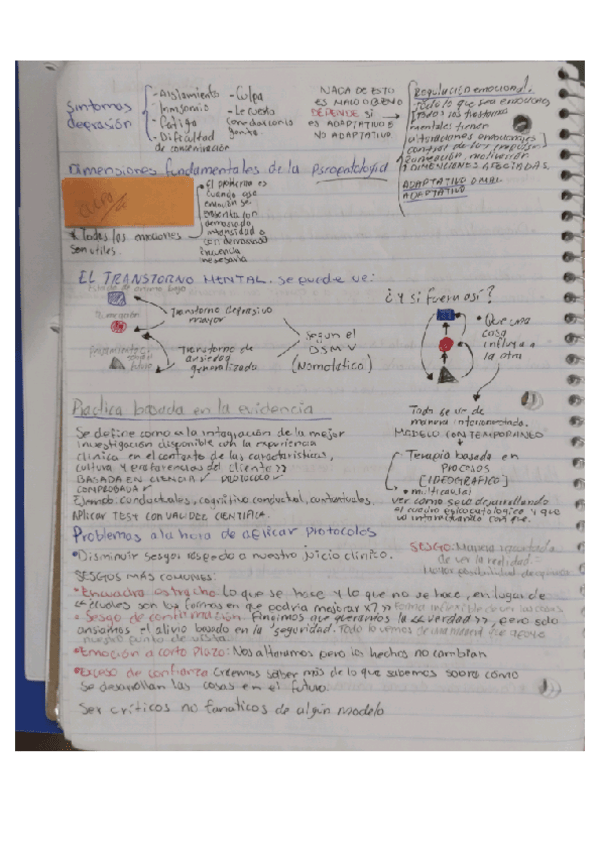 Sintomas depresión
- Aislamiento
- Insomnio
- Fatiga
- Dificultad de concentración
- Culpa
NADA DE ESTO
ES MALO O BUENO
DEPENDE SI
ES ADAPTATIVO O
NO ADAPTATIVO
Regulación emocional.
Todo lo que sea emociones
[Todos los trastornos
mentales tienen
alteraciones emocionales]
motivación
DIMENSIONES AFECTADAS.
ADAPTATIVO O MAL
ADAPTATIVO
Dimensiones fundamentales de la Psicopatología
El problema es
cuando esa
emoción se
con
demasiada
intensidad o
con demasiada
necesaria
* Todas las emociones
son utiles.
EL TRANSTORNO MENTAL. Se puede ve:
Estado de animo bajo
Transtorno depresivo
mayor
Transtorno de
ansiedad
generalizada
Según el
DSM V
(Nomotetico)
¿Y si fuera así?
• Que una
cosa
influya a
la otra
Todo se ve de
manera interconectada.
MODELO CONTEMPORANEO
Terapia basada en
PROCESOS
[IDEOGRAFICO]
• multicausal
ver como se va desarrollando
el cuadro psicopatologico y que
va interactuando con que.
Practica basada en la evidencia
Se define como <<la integración de la mejor
investigación disponible con la experiencia
clinica en el contexto de las caracteristicas,
cultura y preferencias del cliente>>
BASADA EN CIENCIA ✓ PROTOCOLO ✓
COMPROBADA ✓
Ejemplo: conductuales, cognitivo conductual, contextuales.
Aplicar TEST CON VALIDEZ CIENTIFICA.
Problemas a la hora de aplicar protocolos
• Disminuir sesgos respecto a nuestro juicio clinico.
SESGO: Manera
de ver la realidad =
SESGOS MÁS COMUNES:
• Encuadre estrecho Lo que se hace y lo que no se hace, en lugar de
<<¿cuales son las formas en que podría mejorar x?>>
• Sesgo de confirmación. Fingimos que queremos la <<verdad>>, pero solo
ansiamos el alivio basado en la "seguridad.
nuestro punto de vista
• Emoción a corto plazo: Nos alteramos pero los hechos no cambian
• Exceso de confianza Creemos saber más de lo que sabemos sobre como
se desarrollan las cosas en el futuro.
Ser criticos no fanaticos de algún modelo